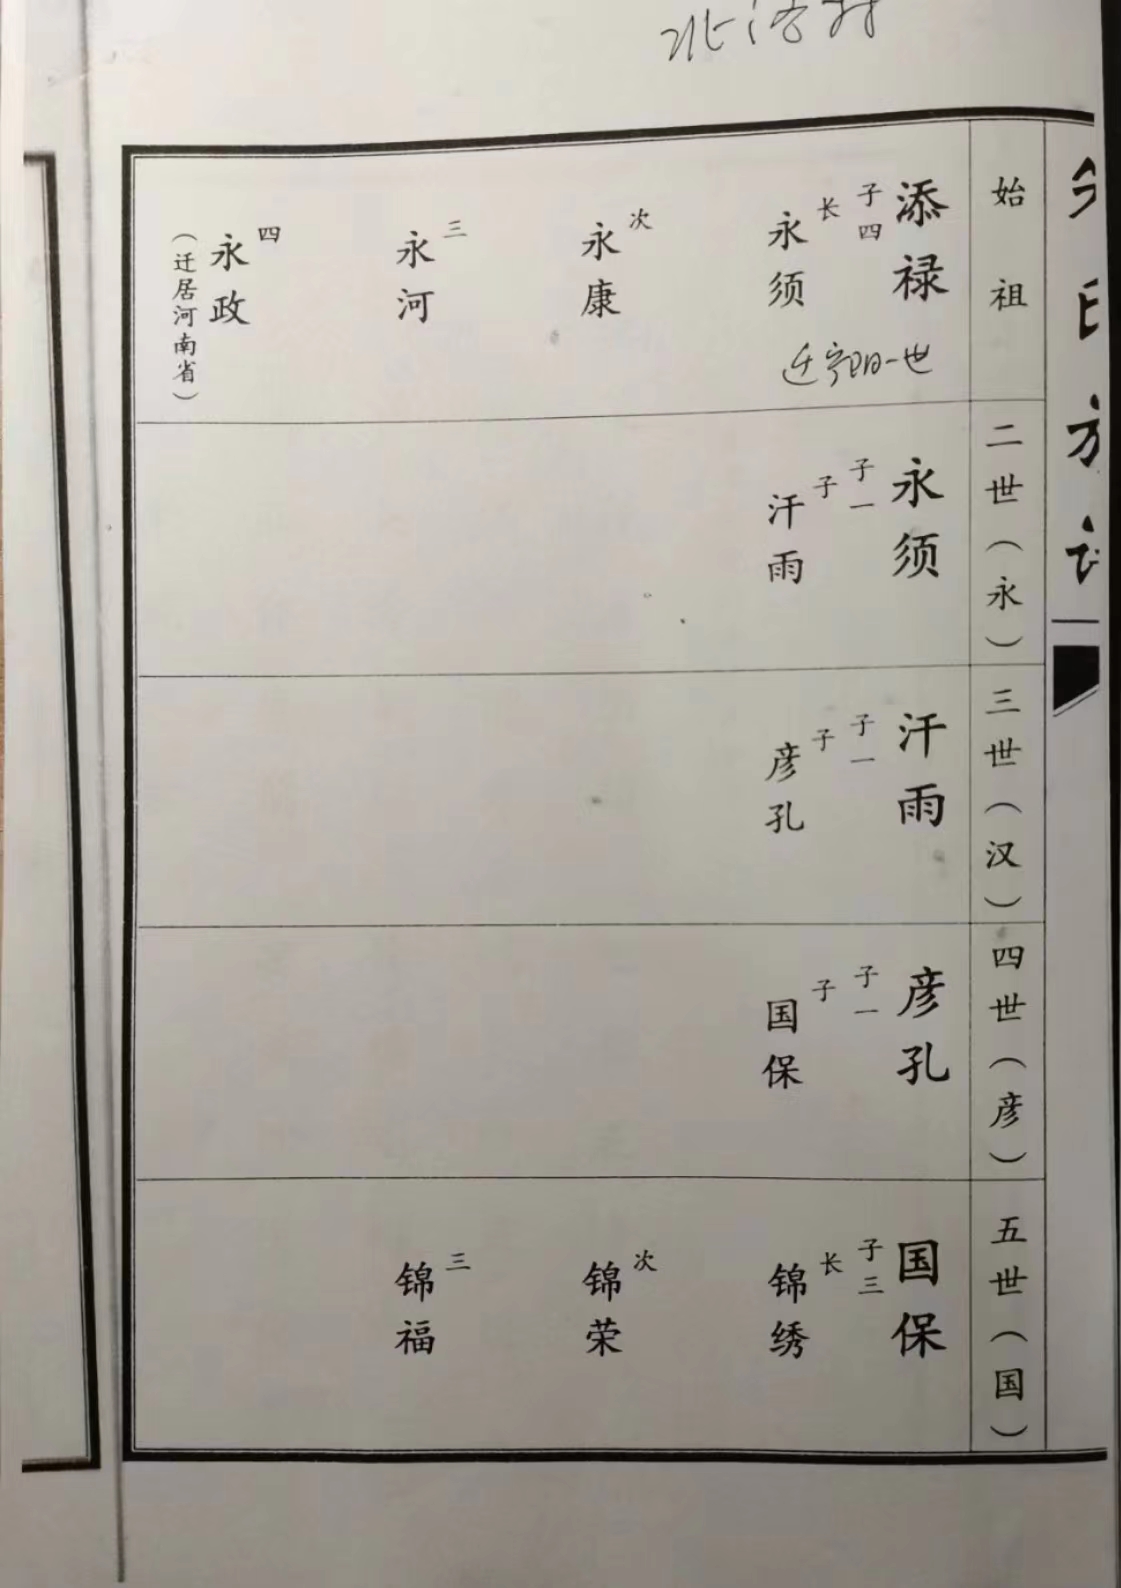 始祖
添禄
子四
长
永须
次
永康
三
永河
四
永政
（迁居河南省）
迁宁阳一世
二世（永）
永须
子一
子
汗雨
三世（汉）
汗雨
子一
子
彦孔
四世（彦）
彦孔
子一
子
国保
五世（国）
国保
子三
长
锦绣
次
锦荣
三
锦福